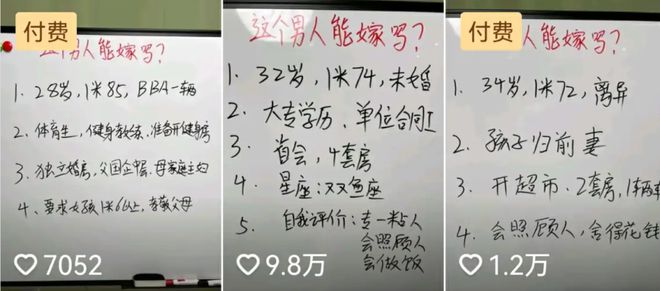 付费
这个男人能嫁吗?
1. 28岁,1米85,BBA一辆
2、体育生,健身教练、准备开健身房
3、独立婚房,父国企中层、母家庭主妇
4、要求女孩1米6以上,孝敬父母
7052
这个男人能嫁吗?
1. 32岁,1米74,未婚
2. 大专学历、单位合同工
3. 省会,4套房
4. 星座:双鱼座
5. 自我评价:专一粘人
会照顾人
会做饭
9.8万
付费
人能嫁吗?
1. 34岁,1米72,离异
2. 孩子归前妻
3. 开超市、2套房,1辆车
4. 会照顾人,舍得花钱
1.2万